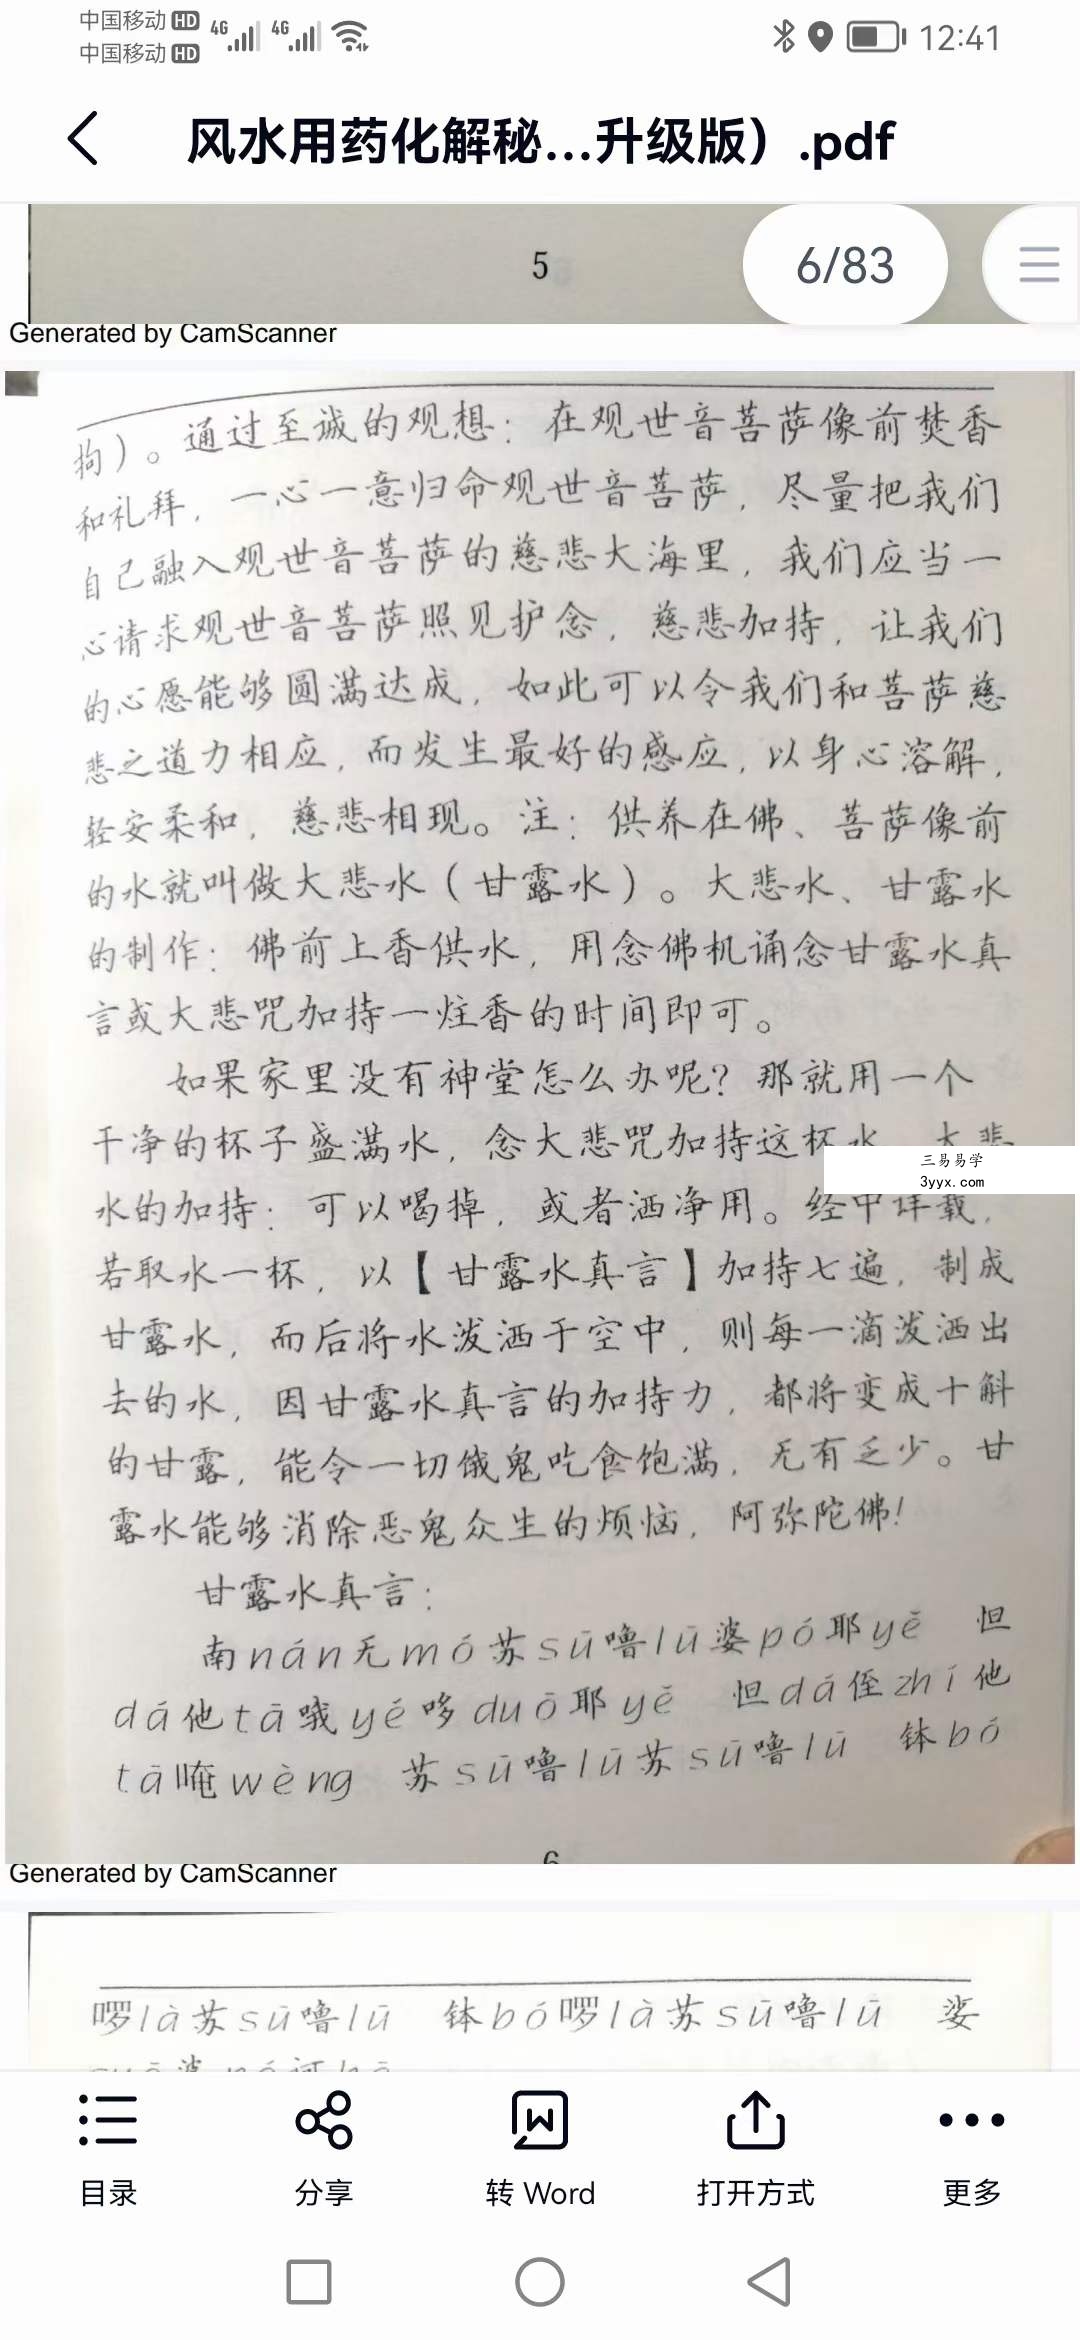 中国移动 HD 4G 4G 12:41
中国移动 HD
风水用药化解秘...升级版）.pdf
5 6/83
Generated by CamScanner
拘）。通过至诚的观想：在观世音菩萨像前焚香
和礼拜，一心一意归命观世音菩萨，尽量把我们
自己融入观世音菩萨的慈悲大海里，我们应当一
心请求观世音菩萨照见护念，慈悲加持，让我们
的心愿能够圆满达成，如此可以令我们和菩萨慈
悲之道力相应，而发生最好的感应，以身心溶解，
轻安柔和，慈悲相现。注：供养在佛、菩萨像前
的水就叫做大悲水（甘露水）。大悲水、甘露水
的制作：佛前上香供水，用念佛机诵念甘露水真
言或大悲咒加持一炷香的时间即可。
如果家里没有神堂怎么办呢？那就用一个
干净的杯子盛满水，念大悲咒加持这杯水 大悲
三易易学
3yyx.com
水的加持：可以喝掉，或者洒净用。经中详载，
若取水一杯，以【甘露水真言】加持七遍，制成
甘露水，而后将水泼洒于空中，则每一滴泼洒出
去的水，因甘露水真言的加持力，都将变成十斛
的甘露，能令一切饿鬼吃食饱满，无有乏少。甘
露水能够消除恶鬼众生的烦恼，阿弥陀佛！
甘露水真言：
南nán无mó苏sū噜lū婆pó耶yē 怛
dá他tā哦yé哆duō耶yē 怛dá侄zhí他
tā唵wèng 苏sū噜lū苏sū噜lū 钵bó
6
Generated by CamScanner
啰là苏sū噜lū 钵bó啰là苏sū噜lū 娑
目录 分享 转 Word 打开方式 更多